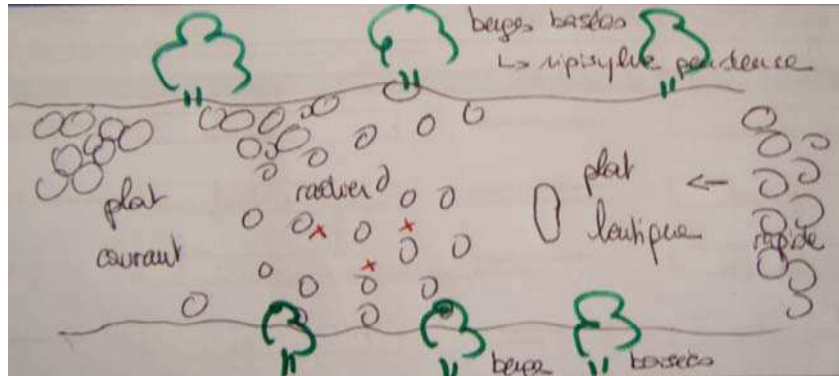 berges boisées
↳ ripisylve pendente
plat
courant
radier
plat
lentique
←
rapide
berge boisées